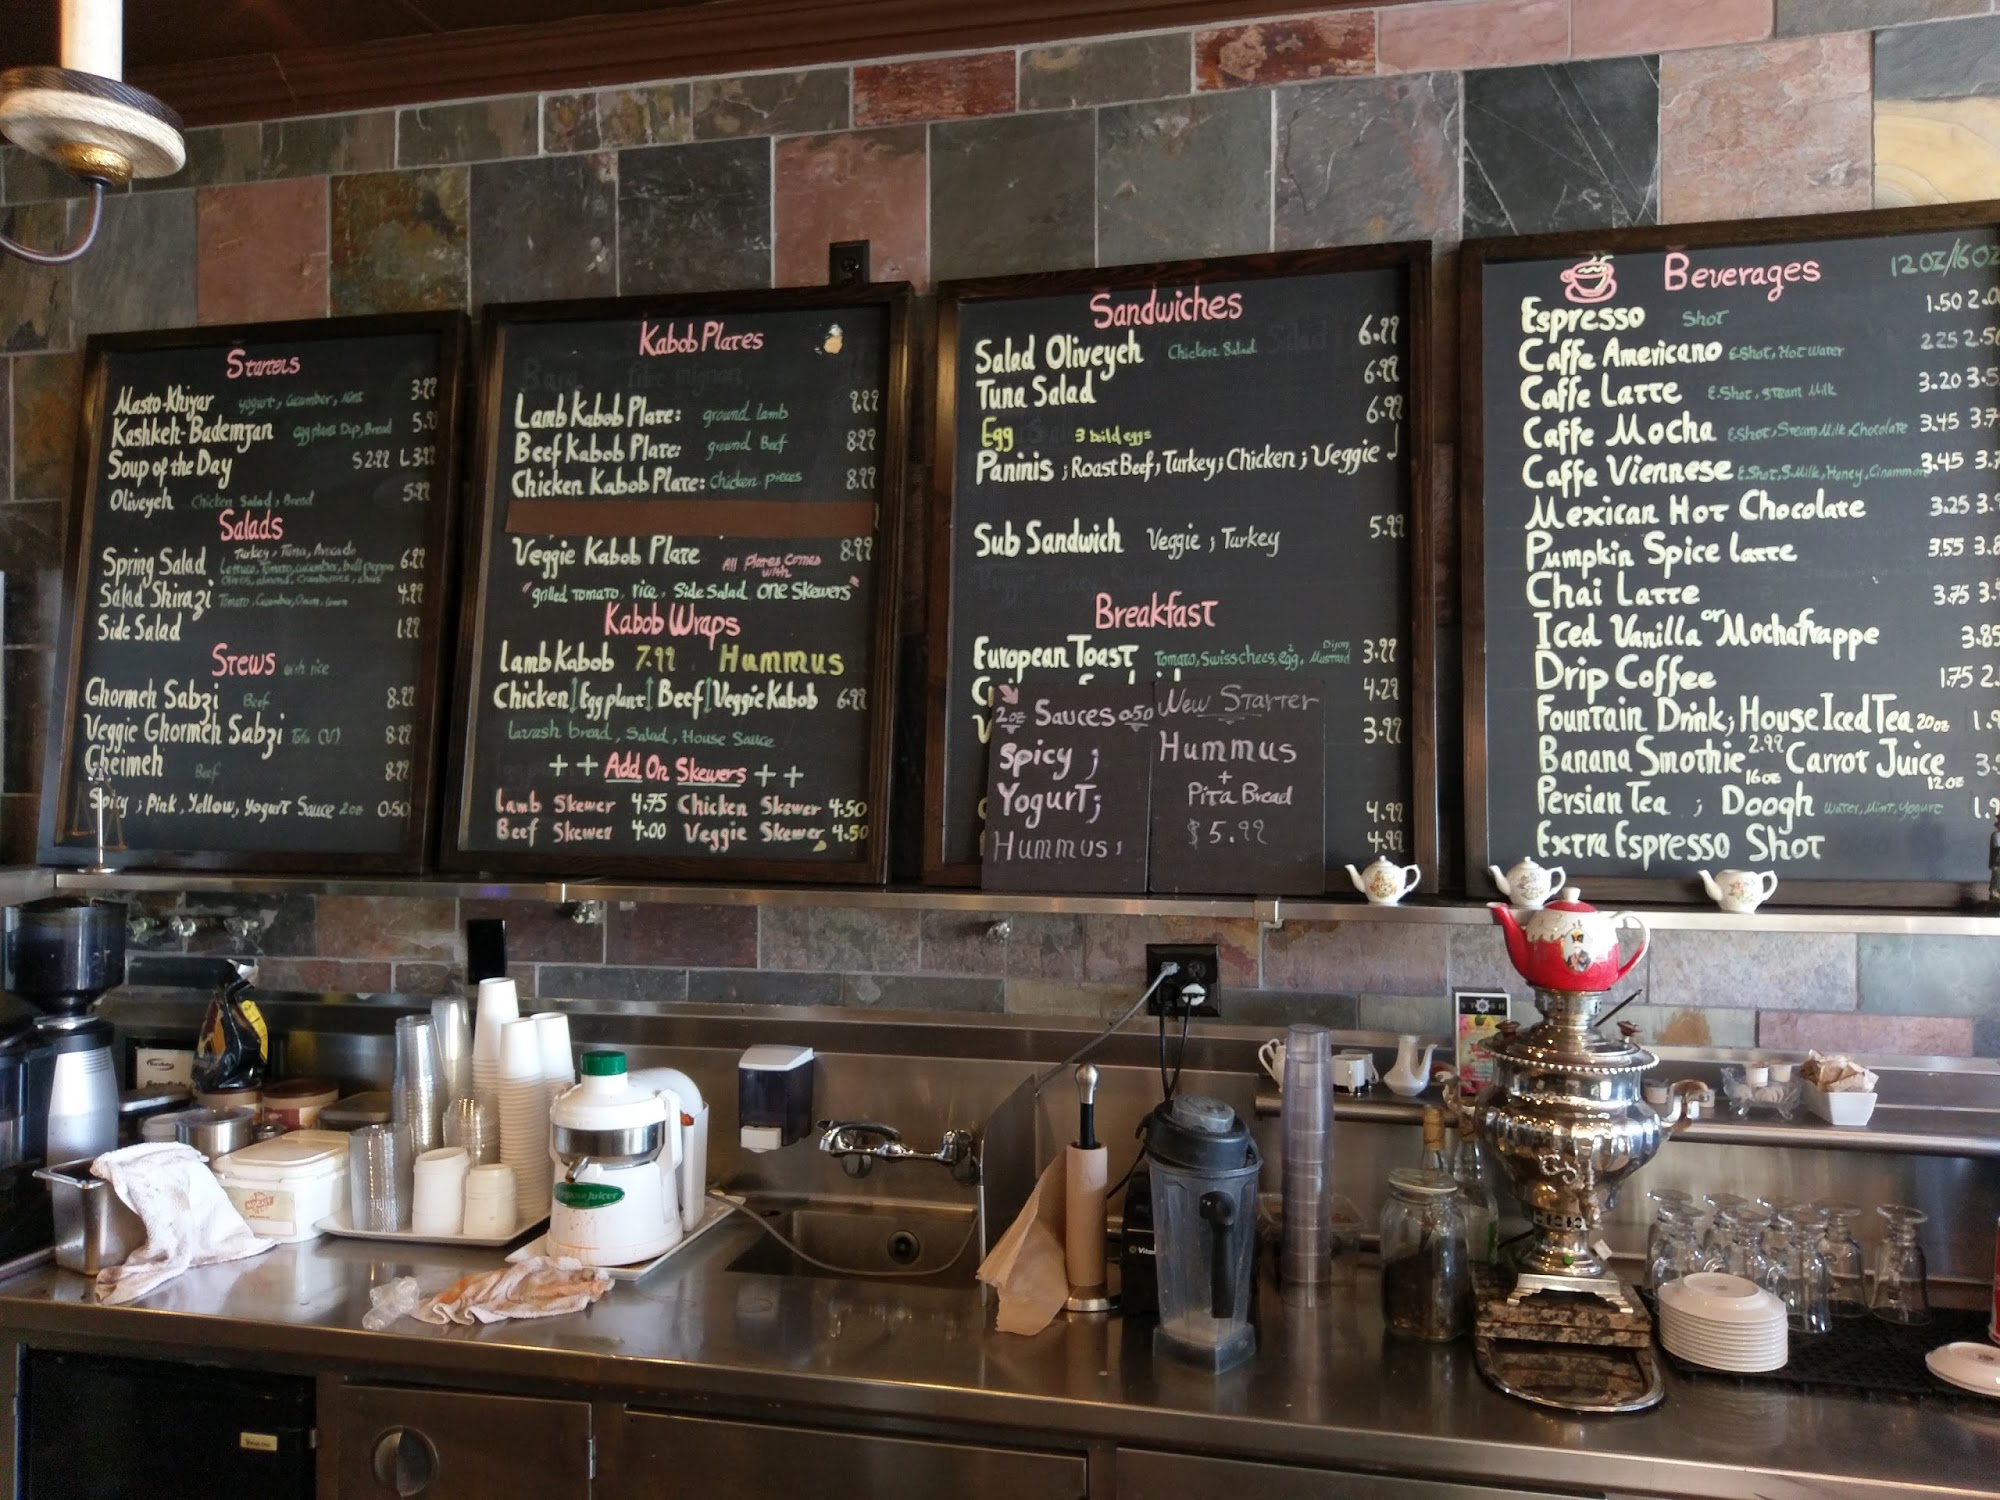 Starters
Masto-Khiyar yogurt, cucumber, mint 3.99
Kashkeh-Bademjan eggplant Dip, Bread 5.99
Soup of the Day S 2.99 L 3.99
Oliveyeh Chicken Salad, Bread 5.99
Salads
Turkey, Tuna, Avocado
Spring Salad Lettuce, Tomato, cucumber, bell peppers 6.99
Olives, almond, Cranberries,
Salad Shirazi Tomato, Cucumber, Onion, 4.99
Side Salad 1.99
Stews with rice
Ghormeh Sabzi Beef 8.99
Veggie Ghormeh Sabzi Tofu (V) 8.99
Gheimeh Beef 8.99
Spicy ; Pink, Yellow, Yogurt Sauce 2oz 0.50
Kabob Plates
Lamb Kabob Plate: ground lamb 9.99
Beef Kabob Plate: ground Beef 8.99
Chicken Kabob Plate: Chicken pieces 8.99
Veggie Kabob Plate 8.99
All Plates Comes with
"grilled Tomato, rice, Side Salad one Skewers"
Kabob Wraps
Lamb Kabob 7.99 Hummus
Chicken | Eggplant | Beef | Veggie Kabob 6.99
Lavash bread, Salad, House Sauce
++ Add On Skewers ++
Lamb Skewer 4.75 Chicken Skewer 4.50
Beef Skewer 4.00 Veggie Skewer 4.50
Sandwiches
Salad Oliveyeh Chicken Salad 6.99
Tuna Salad 6.99
Egg 3 boild eggs 6.99
Paninis ; Roast Beef, Turkey ; Chicken ; Veggie
Sub Sandwich Veggie ; Turkey 5.99
Breakfast
European Toast Tomato, Swiss chees, egg, Dijon Mustard 3.99
4.29
3.99
4.99
4.99
2oz Sauces 0.50
Spicy ;
Yogurt;
Hummus;
New Starter
Hummus
+
Pita Bread
$5.99
Beverages 12oz/16oz
Espresso Shot 1.50 2.0
Caffe Americano E.Shot, Hot Water 2.25 2.5
Caffe Latte E.Shot, Steam Milk 3.20 3.5
Caffe Mocha E.Shot, Steam Milk, Chocolate 3.45 3.7
Caffe Viennese E.Shot, S.Milk, Honey, Cinammon 3.45 3.7
Mexican Hot Chocolate 3.25 3.9
Pumpkin Spice Latte 3.55 3.8
Chai Latte 3.75 3.9
Iced Vanilla or Mochafrappe 3.85
Drip Coffee 1.75 2.
Fountain Drink; House Iced Tea 20oz 1.9
Banana Smothie 2.99 16oz Carrot Juice 12oz 3.
Persian Tea ; Doogh Water, Mint, Yogurt 1.9
Extra Espresso Shot